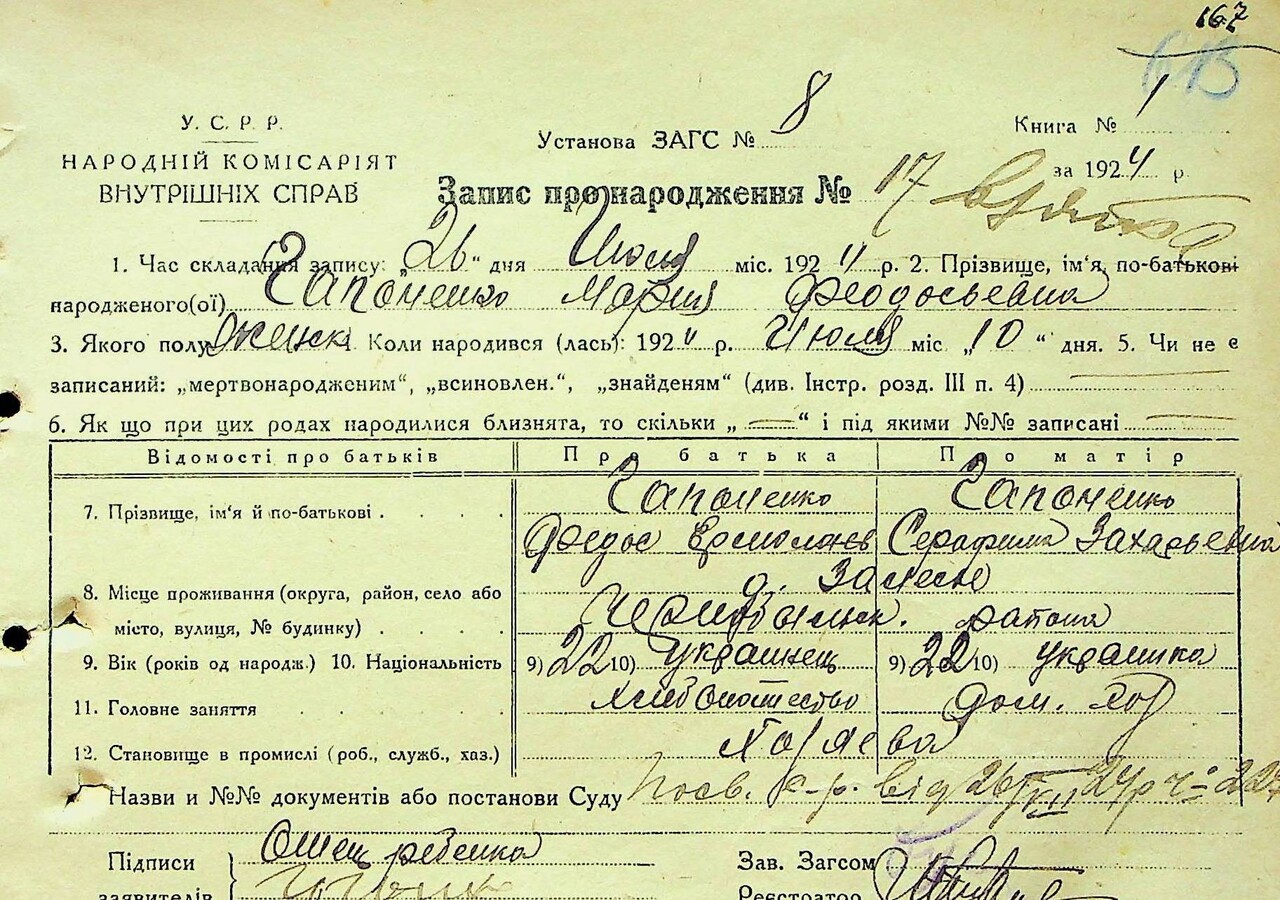 167
У. С. Р. Р.
НАРОДНІЙ КОМІСАРІЯТ
ВНУТРІШНІХ СПРАВ
Установа ЗАГС № 8
Книга № 1
за 1924 р
Запис про народження № 17
1. Час складання запису: „26“ дня Июля міс. 1924 р. 2. Прізвище, ім'я, по-батькові
народженого(ої) Гапоненко Мария Феодосьевна
3. Якого полу женск 4. Коли народився (лась): 1924 р. Июля міс „10“ дня. 5. Чи не є
записаний: „мертвонародженим“, „всиновлен.“, „знайденям“ (див. Інстр. розд. III п. 4)
6. Як що при цих родах народилися близнята, то скільки „ “ і під якими №№ записані
Відомості про батьків Про батька Про матір
7. Прізвище, ім'я й по-батькові . . . Гапоненко Гапоненко
Федос Ермолаев Серафима Захарьевна
8. Місце проживання (округа, район, село або д. Залесье
місто, вулиця, № будинку) . . . . Чернобыльск. района
9. Вік (років од народж.) 10. Національність 9) 22 10) украинец 9) 22 10) украинка
11. Головне заняття . . . . хлебопашество дом. хоз
12. Становище в промислі (роб., служб., хаз.) хозяева
Назви и №№ документів або постанови Суду Посв. с-р. від 26/VII 24р ч
Підписи
заявителів
Отец ребенка
Зав. Загсом
Реєстратор